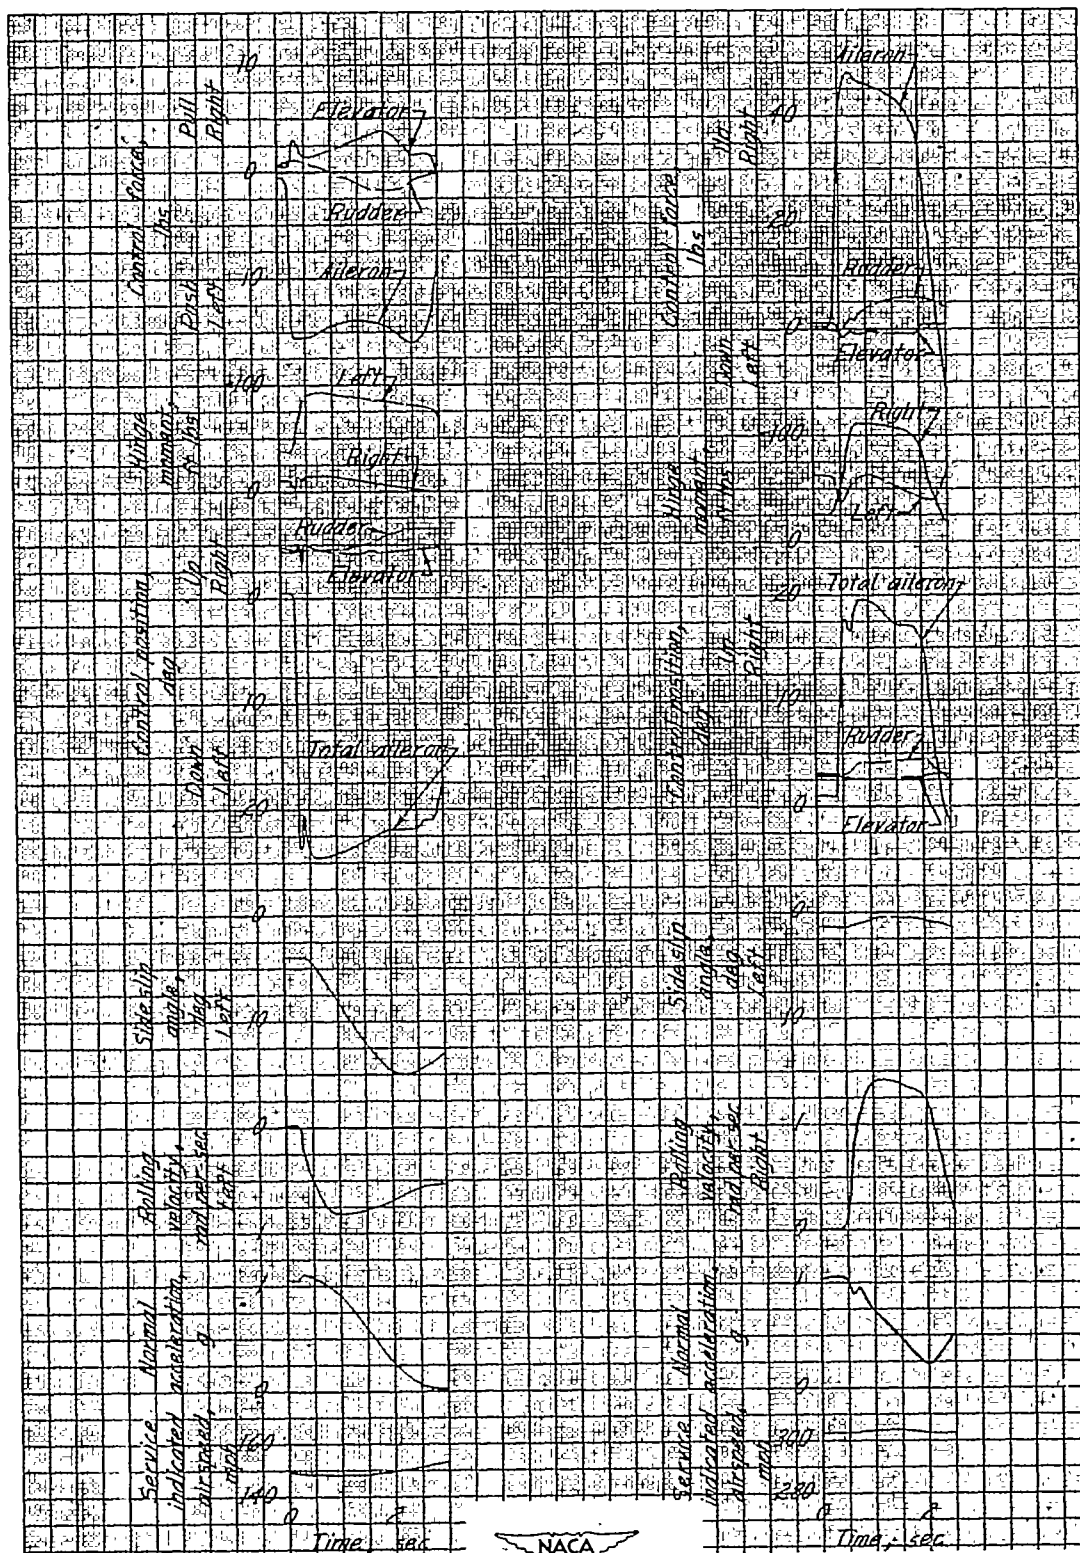 10
Pull
Right
Control force,
lbs
0
Push
Left
10
Elevator
Rudder
Aileron
Hinge
moment,
ft lbs
100
0
Left
Right
Control position,
deg
Up
Right
0
10
Down
Left
20
Rudder
Elevator
Total aileron
Side slip
angle,
deg
Left
0
10
Rolling
velocity,
rad per sec
Left
0
1
Normal
acceleration,
g
1
0
Service
indicated
airspeed,
mph
160
140
0
2
Time, sec
Control force,
lbs
Up
Right
40
20
0
Down
Left
Aileron
Rudder
Elevator
Hinge
moment,
ft lbs
100
0
Right
Left
Control position,
deg
Up
Right
20
10
0
Total aileron
Rudder
Elevator
Side slip
angle,
deg
Left
0
10
Rolling
velocity,
rad per sec
Right
1
0
Normal
acceleration,
g
1
0
Service
indicated
airspeed,
mph
300
280
0
2
Time, sec
NACA